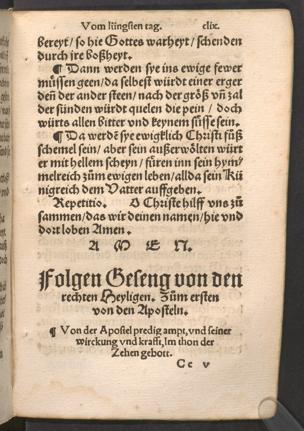 Vom jüngsten tag. clix.
bereyt/ so hie Gottes warheyt/ schenden
durch jre boßheyt.
¶ Dann werden sye ins ewige fewer
müssen geen/ da selbest würdt einer erger
denn der ander steen/ nach der größ vñ zal
der sünden würdt quelen die pein/ doch
würts allen bitter vnd keynem süsse sein.
¶ Da werdẽ sye ewigklich Christi füß
schemel sein/ aber sein außerwölten würt
er mit hellem scheyn/ füren inn sein hym̃
melreich zům ewigen leben/ allda sein Kü
nigreich dem Vatter auffgeben.
Repetitio. O Christe hilff vns zů
sammen/ das wir deinen namen/ hie vnd
dort loben Amen.
A M E N.
Folgen Geseng von den
rechten Heyligen. Zům ersten
von den Aposteln.
¶ Von der Apostel predig ampt, vnd seiner
wirckung vnd krafft, Im thon der
Zehen gebott.
Cc v